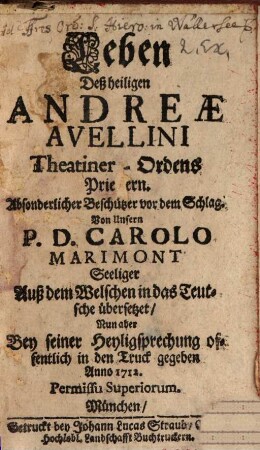 Ad Fres Ord: S. Hiero: in Wallersee
2. Ex.
Leben
Deß heiligen
ANDREÆ
AVELLINI
Theatiner-Ordens
Prie ern.
Absonderlicher Beschützer vor dem Schlag.
Von Unsern
P. D. CAROLO
MARIMONT
Seeliger
Auß dem Welschen in das Teut-
sche übersetzet/
Nun aber
Bey seiner Heyligsprechung of-
fentlich in den Truck gegeben
Anno 1712.
Permissu Superiorum.
München/
Getruckt bey Johann Lucas Straub/
Hochlöbl. Landschafft Buchtruckern.